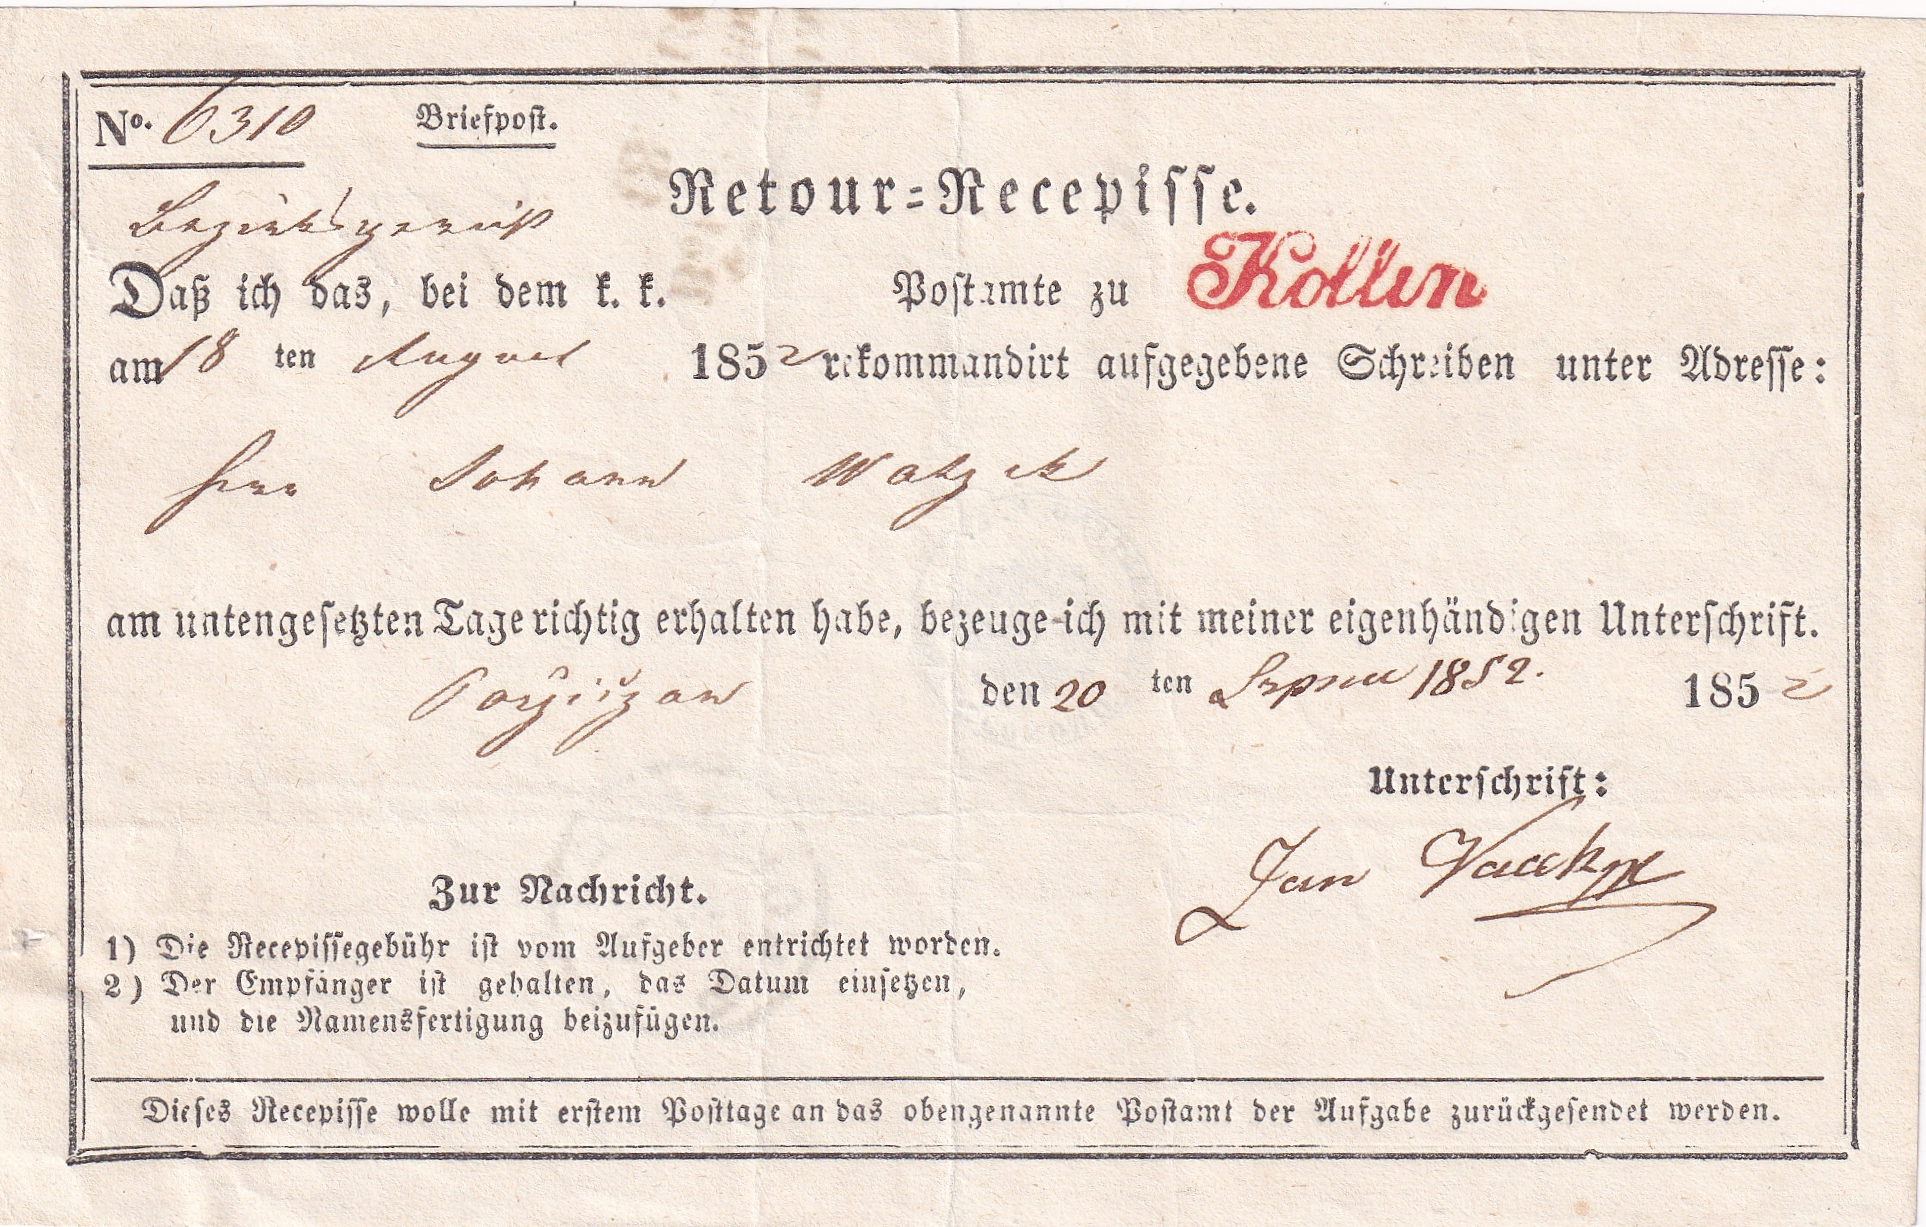 No. 6310 Briefpost.
Retour-Recepisse.
Bezirksgericht
Daß ich das, bei dem k. k. Postamte zu Kollin
am 18 ten August 1852 rekommandirt aufgegebene Schreiben unter Adresse:
Herr Johann Watzek
am untengesetzten Tage richtig erhalten habe, bezeuge ich mit meiner eigenhändigen Unterschrift.
den 20 ten Srpna 1852. 1852
Unterschrift:
Jan
Zur Nachricht.
1) Die Recepissegebühr ist vom Aufgeber entrichtet worden.
2) Der Empfänger ist gehalten, das Datum einsetzen,
und die Namensfertigung beizufügen.
Dieses Recepisse wolle mit erstem Posttage an das obengenannte Postamt der Aufgabe zurückgesendet werden.